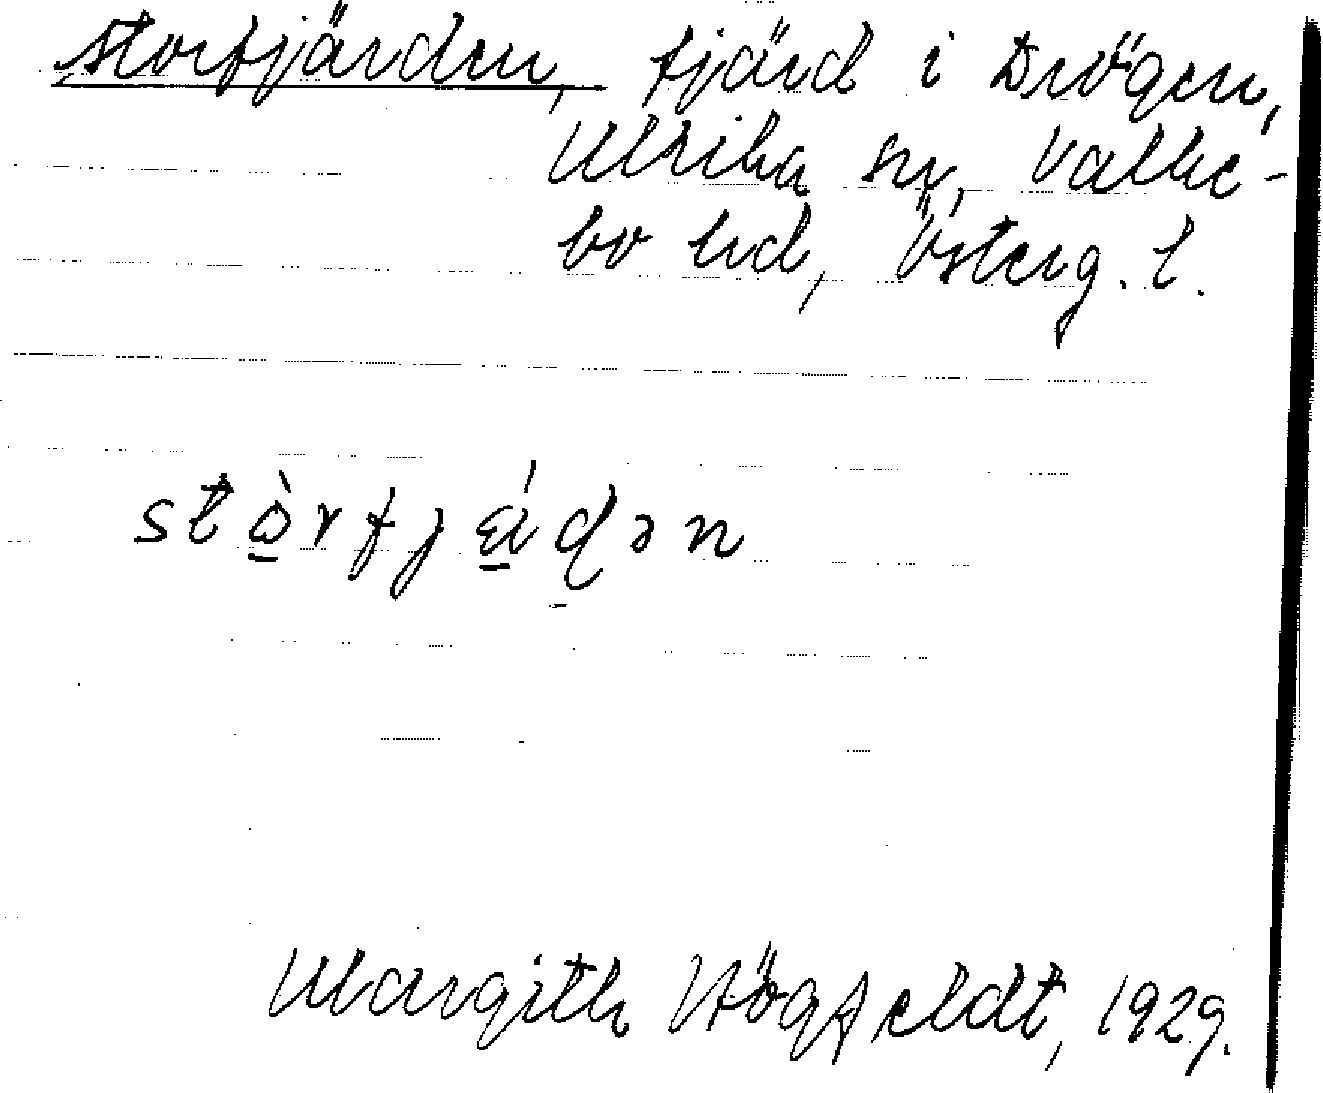 Storfjärden, fjärd i Drögen,
Ulrika sn, Valke-
bo hd, Österg. l.
Margith Högfeldt, 1929.